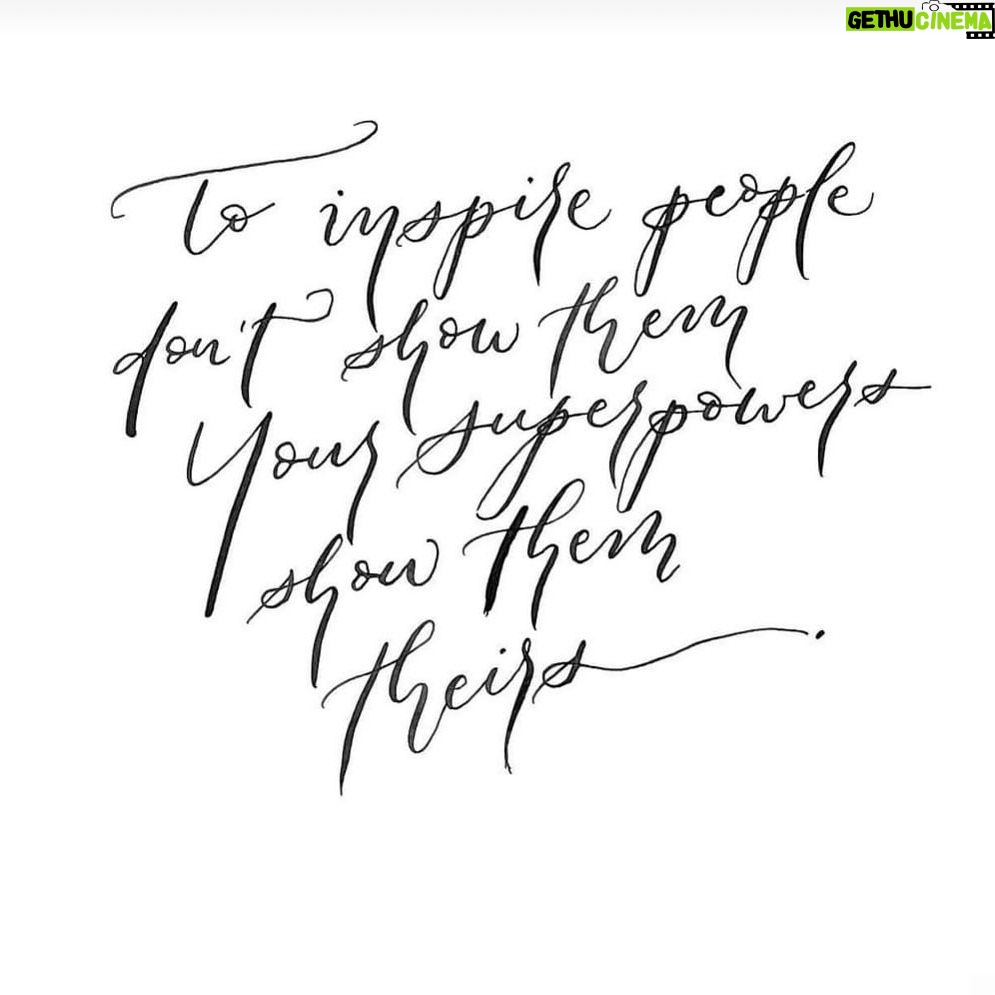 GETHUCINEMA
To inspire people
don't show them
Your superpowers
show them
theirs.